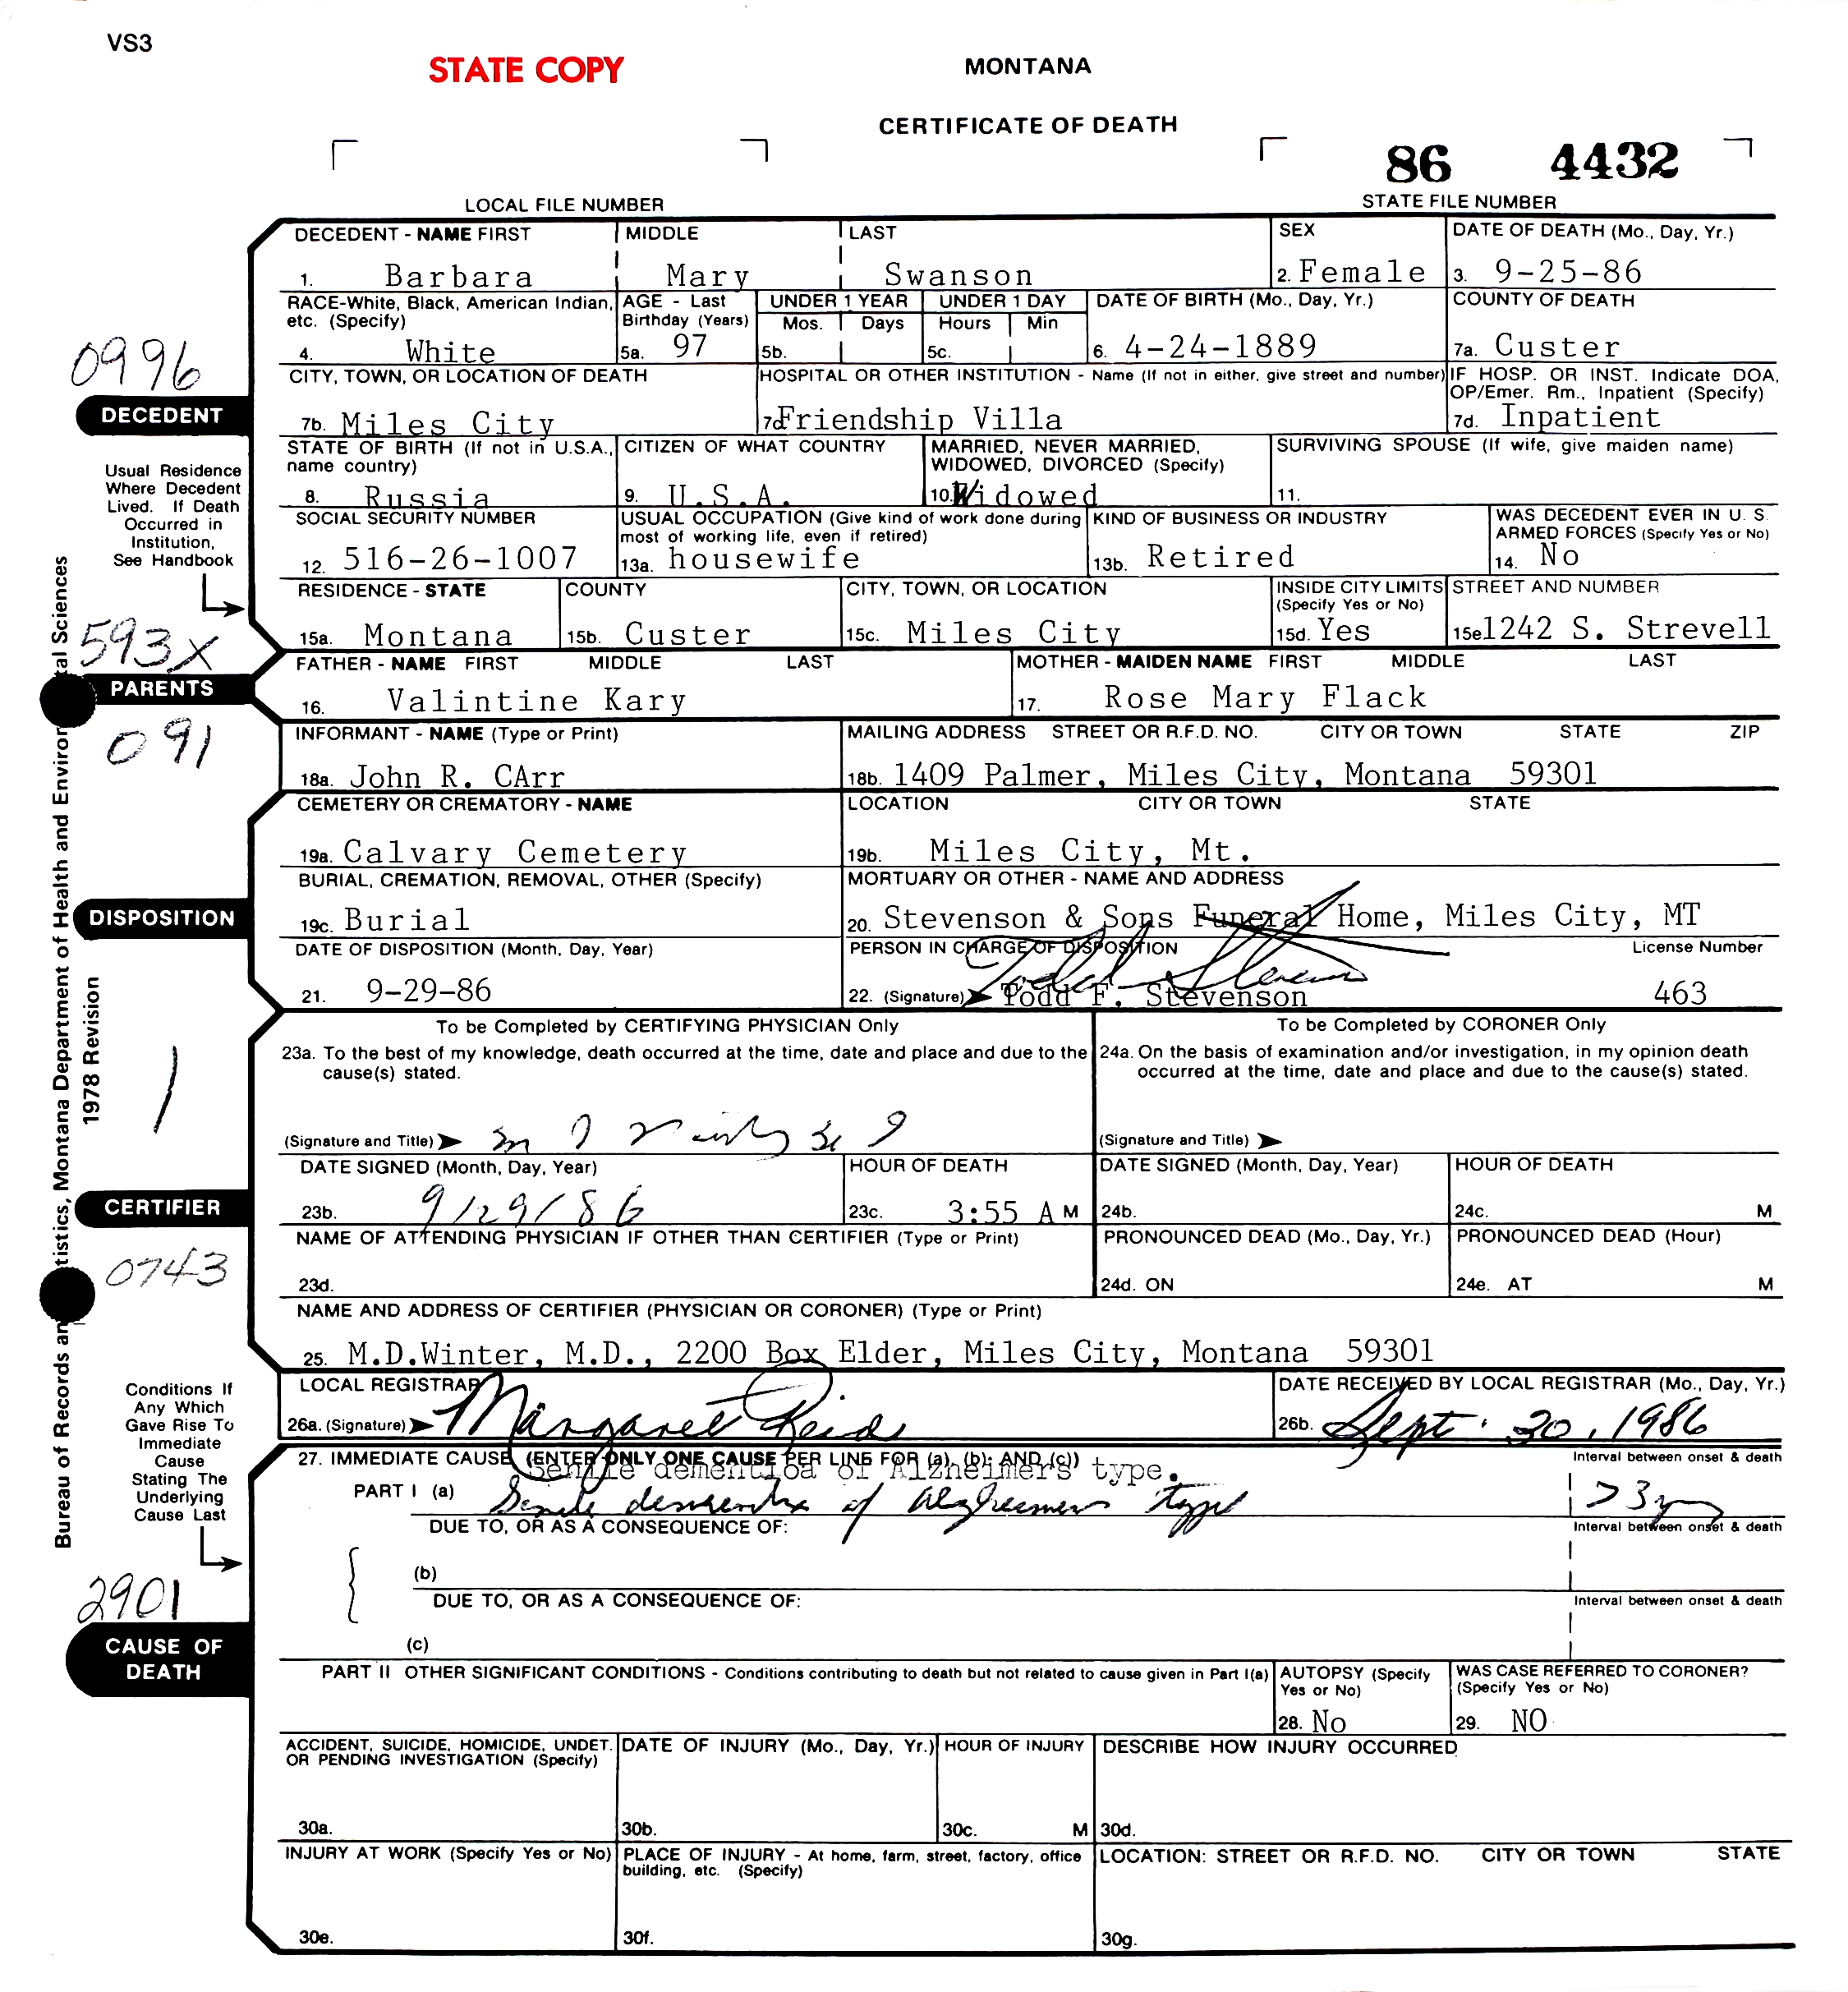 VS3
STATE COPY
MONTANA
CERTIFICATE OF DEATH
86 4432
LOCAL FILE NUMBER
STATE FILE NUMBER
DECEDENT - NAME FIRST MIDDLE LAST SEX DATE OF DEATH (Mo., Day, Yr.)
1. Barbara Mary Swanson 2. Female 3. 9-25-86
RACE-White, Black, American Indian, etc. (Specify) AGE - Last Birthday (Years) UNDER 1 YEAR Mos. Days UNDER 1 DAY Hours Min DATE OF BIRTH (Mo., Day, Yr.) COUNTY OF DEATH
4. White 5a. 97 5b. 5c. 6. 4-24-1889 7a. Custer
0996
CITY, TOWN, OR LOCATION OF DEATH HOSPITAL OR OTHER INSTITUTION - Name (If not in either, give street and number) IF HOSP. OR INST. Indicate DOA, OP/Emer. Rm., Inpatient (Specify)
DECEDENT
7b. Miles City 7d Friendship Villa 7d. Inpatient
STATE OF BIRTH (If not in U.S.A., name country) CITIZEN OF WHAT COUNTRY MARRIED, NEVER MARRIED, WIDOWED, DIVORCED (Specify) SURVIVING SPOUSE (If wife, give maiden name)
8. Russia 9. U.S.A. 10. Widowed 11.
Usual Residence
Where Decedent
Lived. If Death
Occurred in
Institution,
See Handbook
SOCIAL SECURITY NUMBER USUAL OCCUPATION (Give kind of work done during most of working life, even if retired) KIND OF BUSINESS OR INDUSTRY WAS DECEDENT EVER IN U. S. ARMED FORCES (Specify Yes or No)
12. 516-26-1007 13a. housewife 13b. Retired 14. No
RESIDENCE - STATE COUNTY CITY, TOWN, OR LOCATION INSIDE CITY LIMITS (Specify Yes or No) STREET AND NUMBER
15a. Montana 15b. Custer 15c. Miles City 15d. Yes 15e 1242 S. Strevell
593X
FATHER - NAME FIRST MIDDLE LAST MOTHER - MAIDEN NAME FIRST MIDDLE LAST
PARENTS
16. Valintine Kary 17. Rose Mary Flack
091
INFORMANT - NAME (Type or Print) MAILING ADDRESS STREET OR R.F.D. NO. CITY OR TOWN STATE ZIP
18a. John R. CArr 18b. 1409 Palmer, Miles City, Montana 59301
CEMETERY OR CREMATORY - NAME LOCATION CITY OR TOWN STATE
19a. Calvary Cemetery 19b. Miles City, Mt.
BURIAL, CREMATION, REMOVAL, OTHER (Specify) MORTUARY OR OTHER - NAME AND ADDRESS
DISPOSITION
19c. Burial 20. Stevenson & Sons Funeral Home, Miles City, MT
DATE OF DISPOSITION (Month, Day, Year) PERSON IN CHARGE OF DISPOSITION License Number
21. 9-29-86 22. (Signature) Todd F. Stevenson 463
To be Completed by CERTIFYING PHYSICIAN Only To be Completed by CORONER Only
23a. To the best of my knowledge, death occurred at the time, date and place and due to the cause(s) stated.
24a. On the basis of examination and/or investigation, in my opinion death occurred at the time, date and place and due to the cause(s) stated.
1
(Signature and Title) (Signature and Title)
DATE SIGNED (Month, Day, Year) HOUR OF DEATH DATE SIGNED (Month, Day, Year) HOUR OF DEATH
CERTIFIER
23b. 9/29/86 23c. 3:55 A M 24b. 24c. M
NAME OF ATTENDING PHYSICIAN IF OTHER THAN CERTIFIER (Type or Print) PRONOUNCED DEAD (Mo., Day, Yr.) PRONOUNCED DEAD (Hour)
0743
23d. 24d. ON 24e. AT M
NAME AND ADDRESS OF CERTIFIER (PHYSICIAN OR CORONER) (Type or Print)
25. M.D.Winter, M.D., 2200 Box Elder, Miles City, Montana 59301
LOCAL REGISTRAR DATE RECEIVED BY LOCAL REGISTRAR (Mo., Day, Yr.)
26a. (Signature) Margaret Reid 26b. Sept. 30, 1986
Conditions If
Any Which
Gave Rise To
Immediate
Cause
Stating The
Underlying
Cause Last
27. IMMEDIATE CAUSE (ENTER ONLY ONE CAUSE PER LINE FOR (a), (b), AND (c)) Interval between onset & death
Senile dementioa of Alzheimers type.
PART I (a) Senile dementia of Alzheimers type >3 yrs
DUE TO, OR AS A CONSEQUENCE OF: Interval between onset & death
(b)
2901
DUE TO, OR AS A CONSEQUENCE OF: Interval between onset & death
(c)
CAUSE OF
DEATH
PART II OTHER SIGNIFICANT CONDITIONS - Conditions contributing to death but not related to cause given in Part I(a) AUTOPSY (Specify Yes or No) WAS CASE REFERRED TO CORONER? (Specify Yes or No)
28. No 29. NO
ACCIDENT, SUICIDE, HOMICIDE, UNDET. OR PENDING INVESTIGATION (Specify) DATE OF INJURY (Mo., Day, Yr.) HOUR OF INJURY DESCRIBE HOW INJURY OCCURRED
30a. 30b. 30c. M 30d.
INJURY AT WORK (Specify Yes or No) PLACE OF INJURY - At home, farm, street, factory, office building, etc. (Specify) LOCATION: STREET OR R.F.D. NO. CITY OR TOWN STATE
30e. 30f. 30g.
Bureau of Records and Statistics, Montana Department of Health and Environmental Sciences
1978 Revision